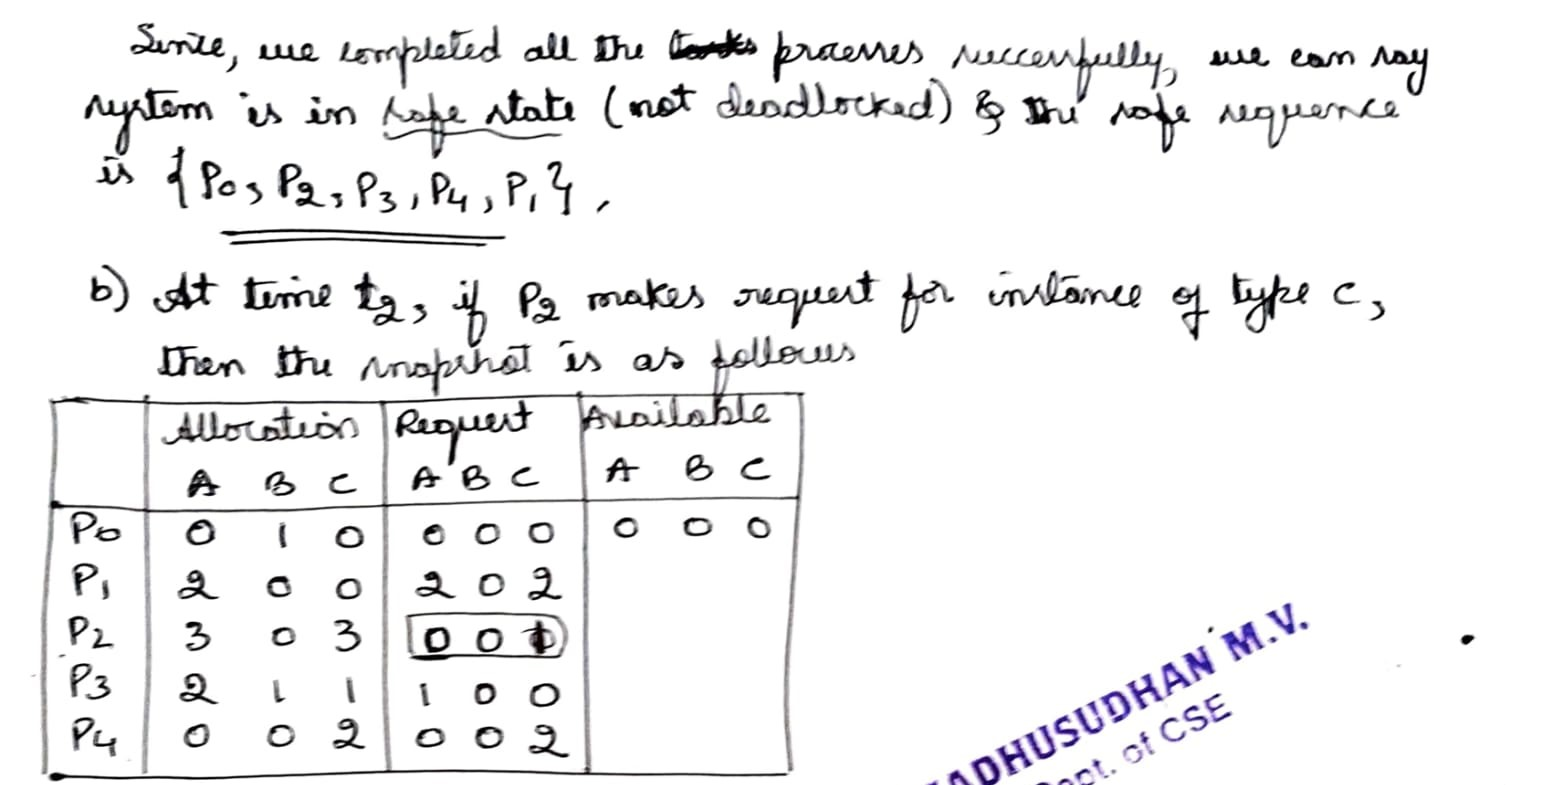 Since, we completed all the processes successfully, we can say
system is in safe state (not deadlocked) & the safe sequence
is {P0, P2, P3, P4, P1}.
b) At time t2, if P2 makes request for instance of type C,
then the snapshot is as follows
Allocation Request Available
A B C A B C A B C
P0 0 1 0 0 0 0 0 0 0
P1 2 0 0 2 0 2
P2 3 0 3 0 0 1
P3 2 1 1 1 0 0
P4 0 0 2 0 0 2
ADHUSUDHAN M.V.
Dept. of CSE